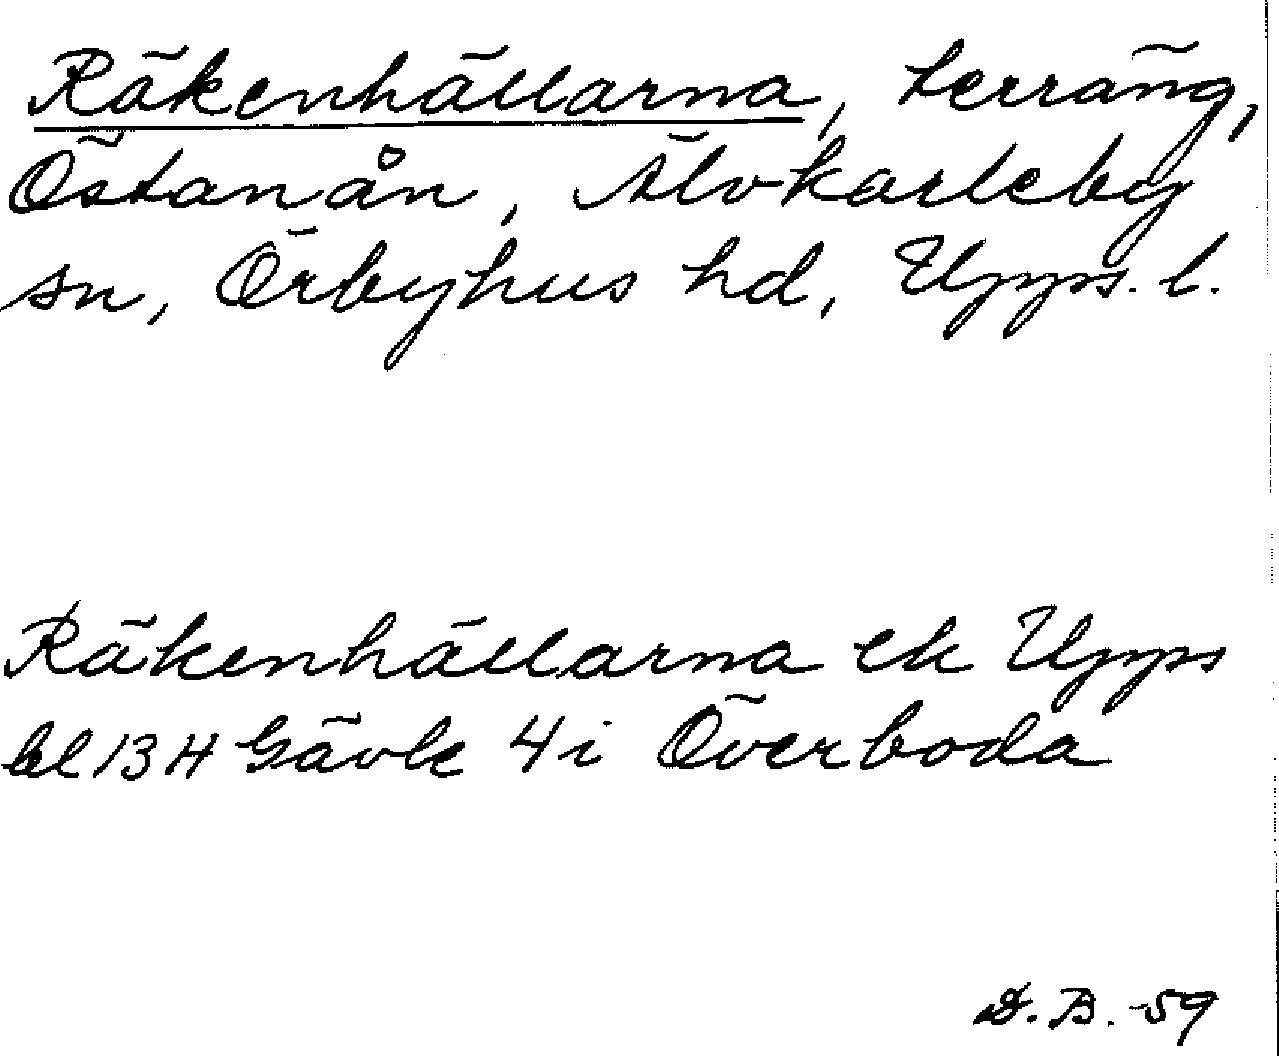 Räkenhällarna, terräng,
Östanån, Älvkarleby
sn, Örbyhus hd, Upps. l.
Räkenhällarna ek Upps
bl 13 H Gävle 4 i Överboda
D. B. -59